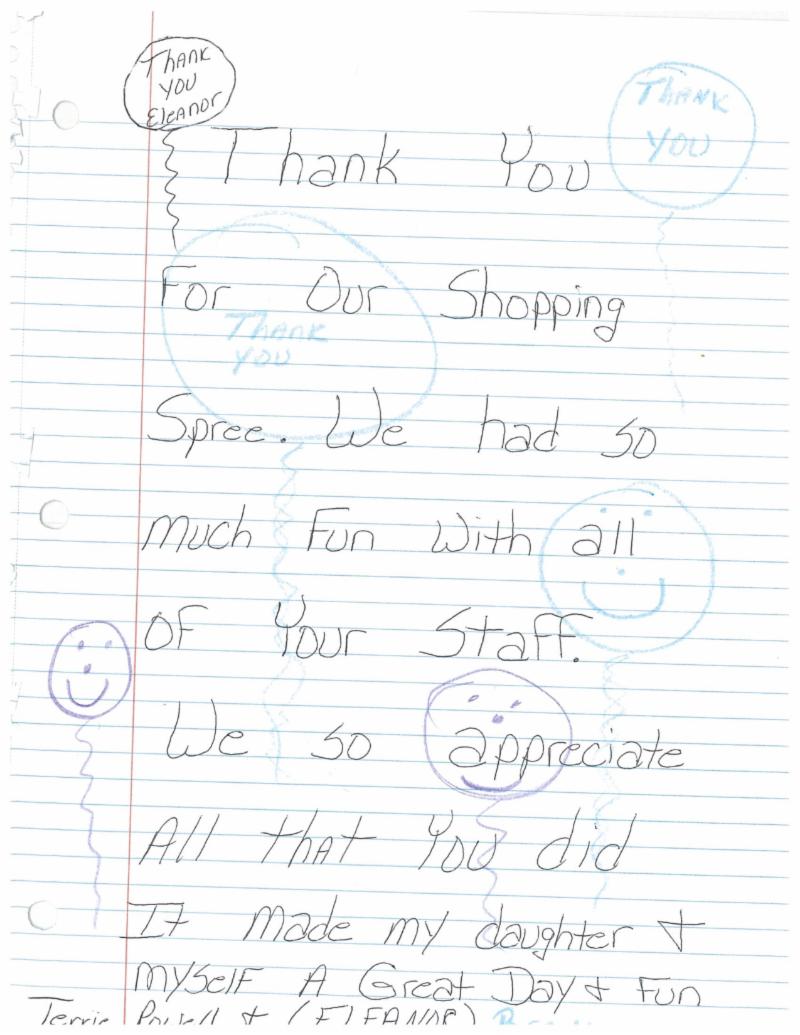 Thank
You
Eleanor
Thank
You
Thank You
For Our Shopping
Thank
You
Spree. We had so
much Fun with all
OF Your Staff.
We so appreciate
All that You did
It made my daughter +
mySelf A Great Day + Fun
Terrie Powell + (ELEANOR)